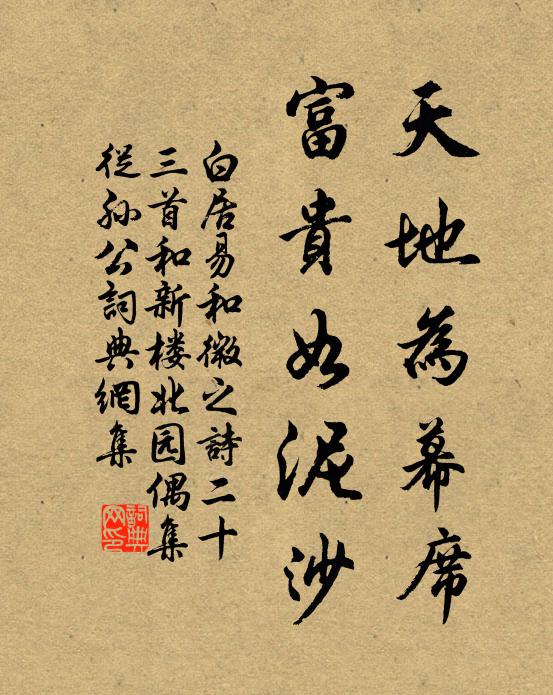 天地為幕席
富貴如泥沙
白居易和微之詩二十
三首和新楼北园偶集
從孙公詞典網集
詞典
网印